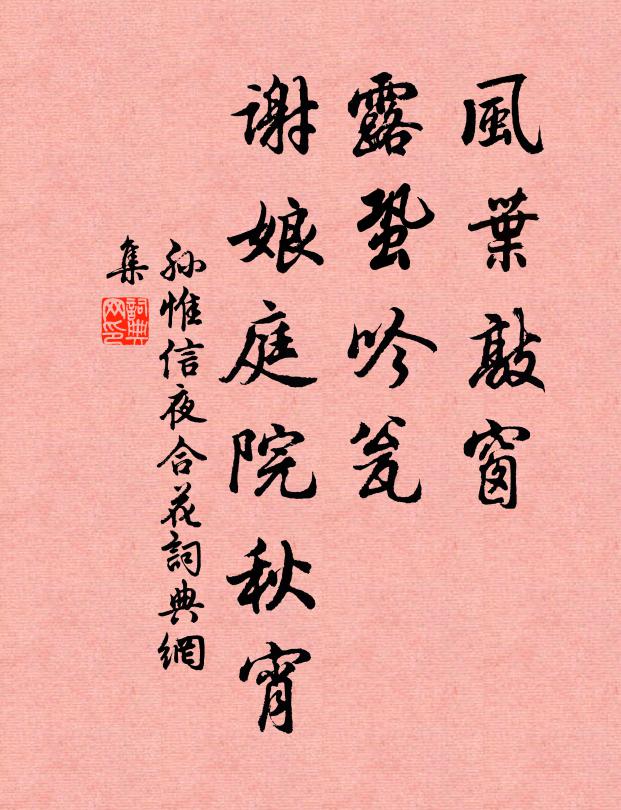 風葉敲窗
露蛩吟甃
謝娘庭院秋宵
孫惟信夜合花詞典網
集
詞典
网印